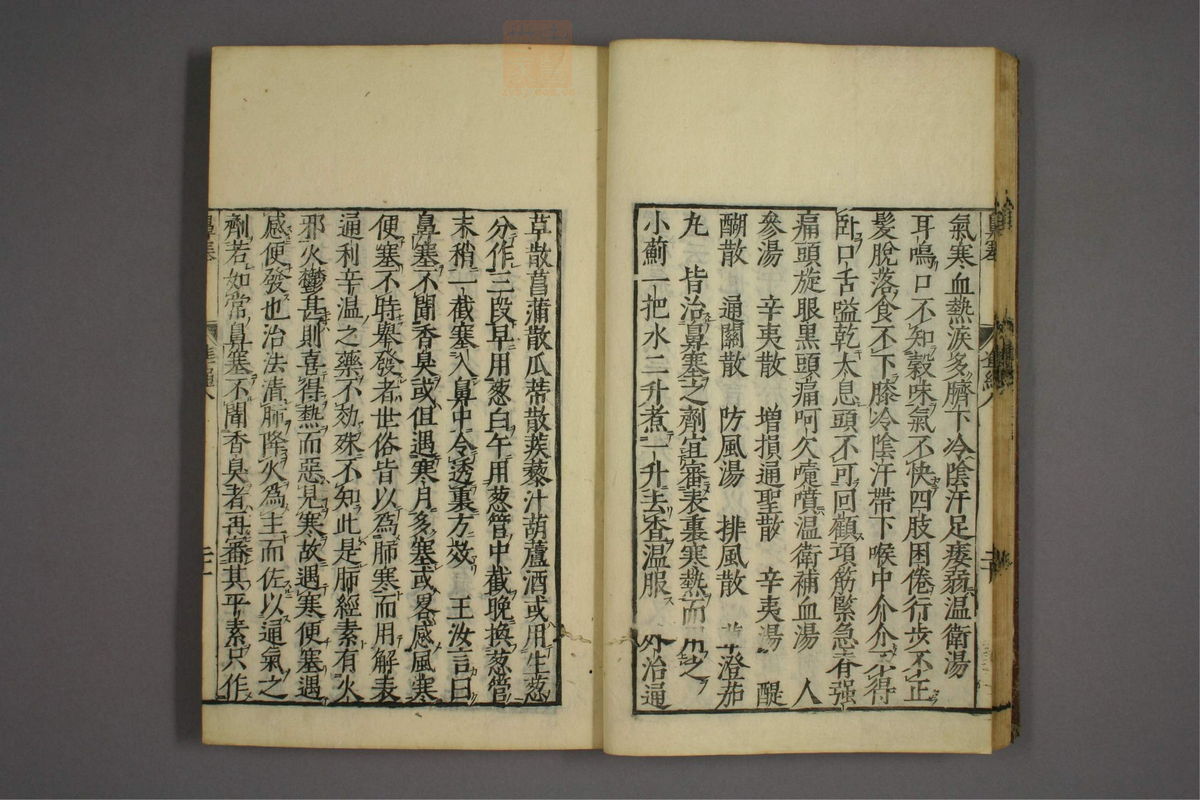 氣寒血熱涎多臍下冷陰汗足痿弱溫衛湯
耳鳴口不知穀味氣不快四肢困倦行步不正
髮脫落食不下膝冷陰汗帶下喉中介介不得
卧口舌嗌乾太息頭不可回顧項筋緊急脊强
痛頭旋眼黑頭痛呵欠嚏噴溫衛補血湯 人
參湯 辛夷散 增損通聖散 辛夷湯 醍
醐散 通關散 防風湯 排風散 蓽澄茄
丸 皆治鼻塞之劑宜審表裏寒熱而用之
小薊一把水二升煮一升去査溫服 外治通
草散菖蒲散瓜蒂散蒺藜汁葫蘆酒或用生葱
分作三段早用葱白午用葱管中截晚換葱管
末稍一截塞入鼻中令透裏方效 王汝言曰
鼻塞不聞香臭或但遇寒月多塞或畧感風寒
便塞不時舉發者世俗皆以爲肺寒而用解表
通利辛溫之藥不効殊不知此是肺經素有火
邪火鬱甚則喜得熱而惡見寒故遇寒便塞遇
感便發也治法清肺降火爲主而佐以通氣之
劑若如常鼻塞不聞香臭者再審其平素只作
鼻塞